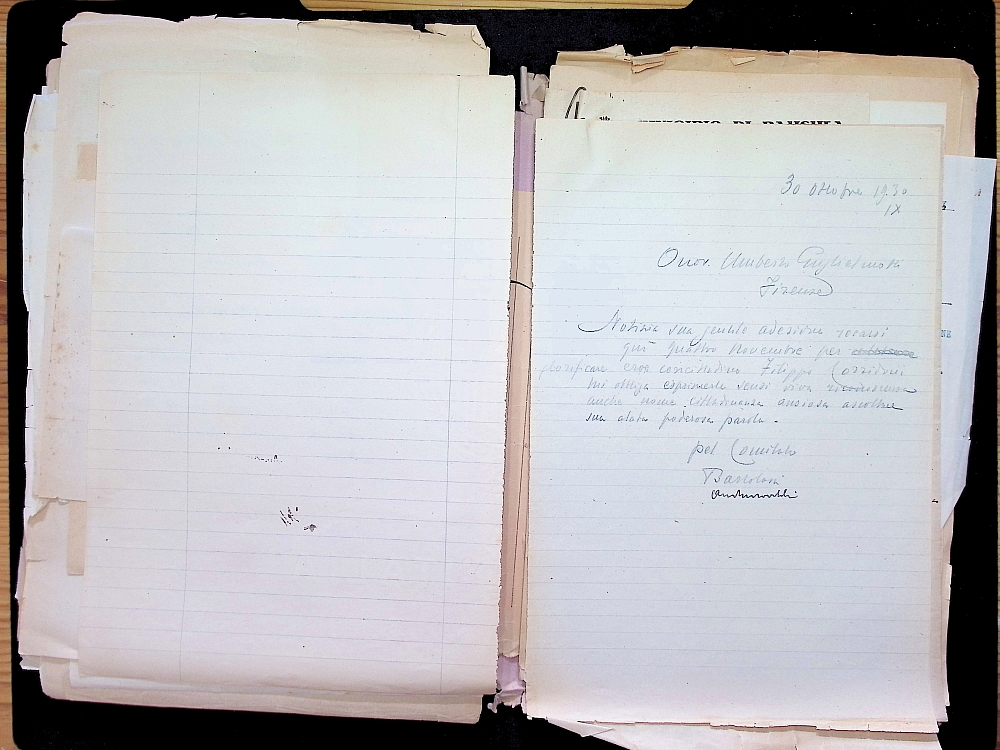 MUNICIPIO DI PAUSULA
30 ottobre 1930
IX
Onor. Umberto Guglielmotti
Firenze
Notizia sua gentile adesione recarsi
qui quattro novembre per
glorificare eroe concittadino Filippo Corridoni
mi obbliga esprimerle sensi viva riconoscenza
anche nome cittadinanza ansiosa ascoltare
sua alata poderosa parola.
pel Comitato
Bartolazzi